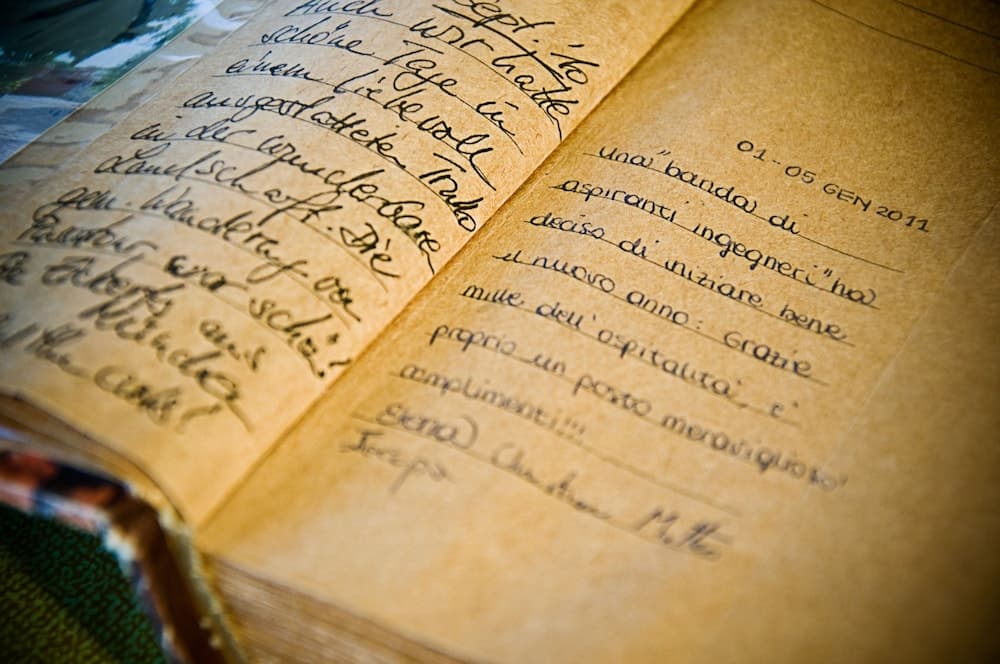 Sept. '10
Auch wir hatten
schöne Tage in
einem liebevoll
ausgestatteten Trullo
in der wunderbare
Landschaft. Die
gem. Wanderung von
war schön!
aus
München
01-05 GEN 2011
una "banda di
aspiranti ingegneri" ha
deciso di iniziare bene
il nuovo anno: Grazie
mille dell'ospitalità, e'
proprio un posto meraviglioso!
complimenti!!!
Elena Christian Matteo